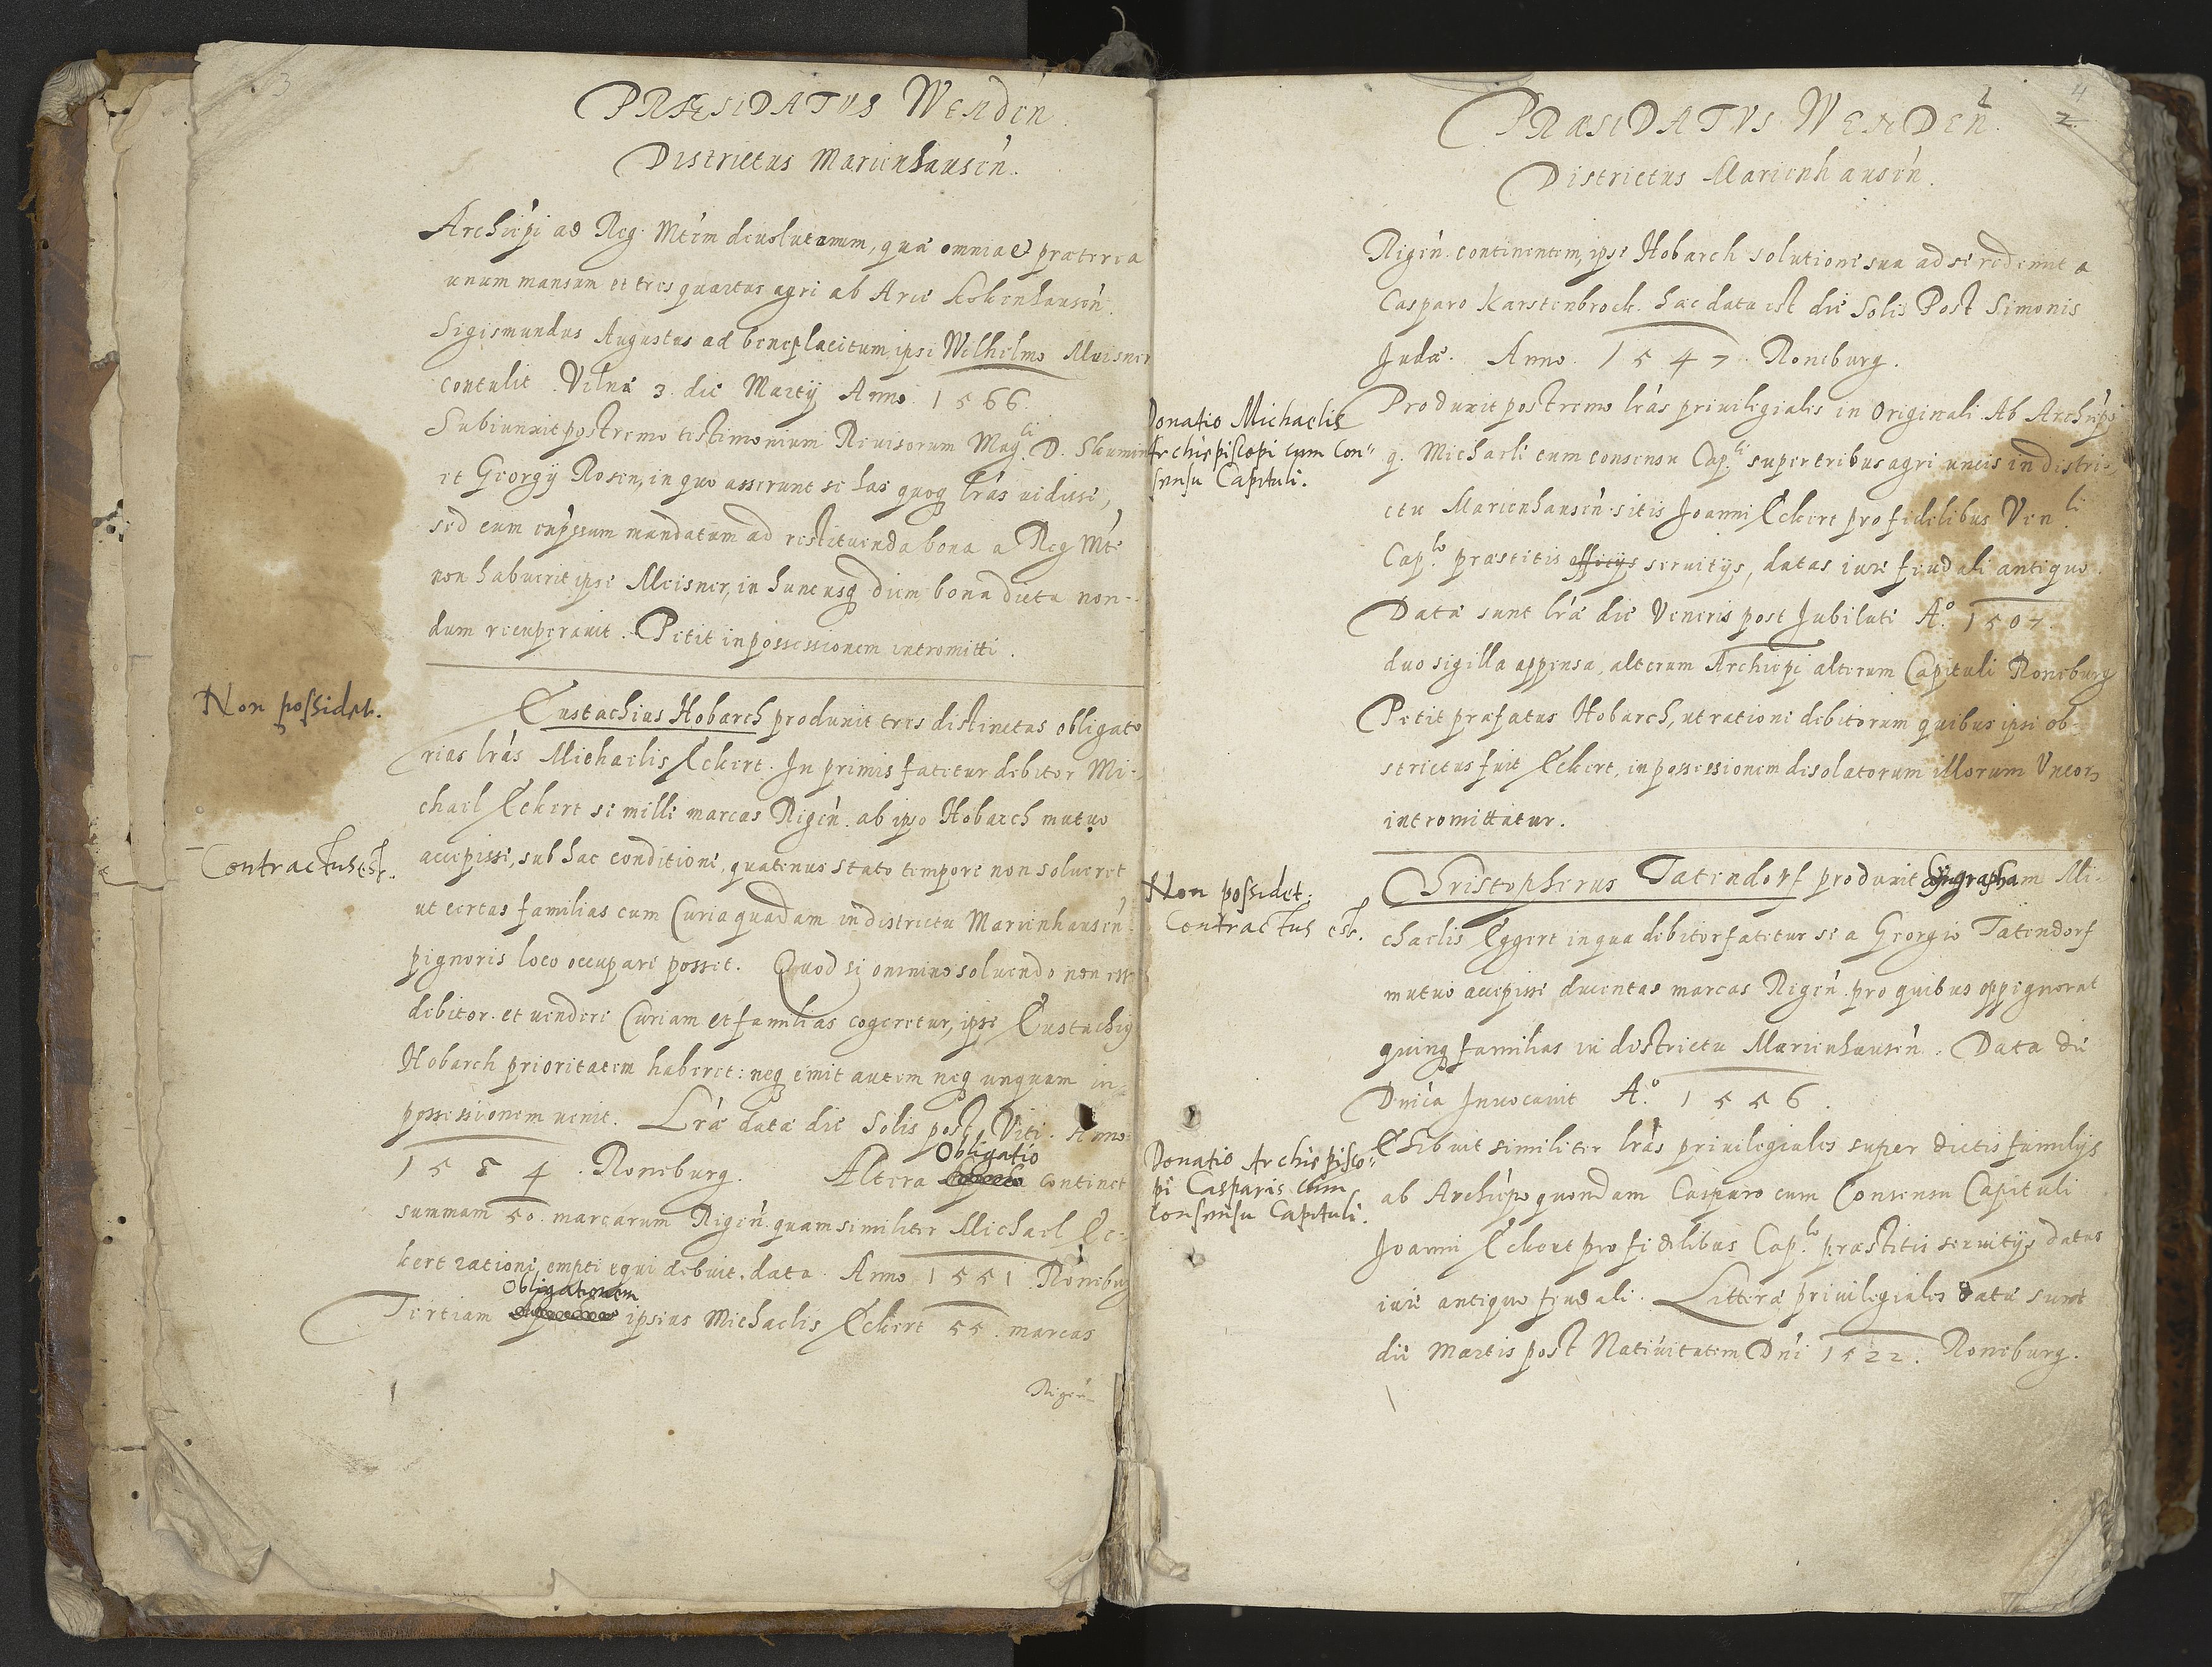 3
PRÆSIDATVS WENDEN
Districtus Marienhausen.
Archiepi ad Reg: Mtem deuolutamm, qua omnia et praeterea
unum mansum et tres quartas agri ab Arce Kokenhausen.
Sigismundus Augustus ad beneplacitum ipsi Welhelmo Meisner
contulit Vilnæ 3. die Martij Anno. 1566.
Subiunxit postremo testimonium Reuisorum Mag.ci D. Skumin
et Georgij Rosen, in quo asserunt se has quoq lras uidisse,
sed cum expssum mandatum ad restituenda bona a Reg Mte
non habuerit ipse Meisner, in hunc usq diem bona dicta non-
dum recuperauit. Petit in possessionem intromitti.
Non possidet.
Eustachius Hobarch produxit tres distinctas obligato
rias lras Michaelis Eckert. In primis fatetur debitor Mi-
chael Eckert se mille marcas Rigen. ab ipso Hobarch mutuo
Contractus est.
accepisse, sub hac conditione, quatenus stato tempore non solueret
ut certas familias cum Curia quadam in districtu Marienhausen
pignoris loco occupare posset. Quod si omnino soluendo non esset
debitor. et uendere Curiam et familias cogeretur, ipse Eustachig
Hobarch prioritatem haberet: neq emit autem neq unquam in
possessionem uenit. Lræ datæ die Solis post Viti. Anno
Obligatio
1554. Roneburg. Altera continet
summam 50. marcarum Rigen. quam similiter Michael Ec-
kert ratione empti equi debuit. data Anno 1551 Roneburg
Obligationem
Tertiam ipsius Michaelis Eckert 55. marcas
Rigen-
4
2
PRæSIDATVS WENDEN.
Districtus Marienhausen.
Rigen. continentem, ipse Hobarch solutione sua ad se redemit a
Casparo Karstenbrock. hæc data est die Solis Post Simonis
Judæ. Anno. 1547. Roneburg.
Donatio Michaelis
Archiepiscopi cum Con-
sensu Capituli.
Produxit postremo lras priuilegiales in Originali Ab Archiepo
q. Michaele cum consensu Cap.li super tribus agri uncis in distri-
ctu Marienhausen sitis Joanni Eckert pro fidelibus Ven.li
Cap.lo praestitis officijs seruitijs, datas iure feudali antiquo.
Datæ sunt lræ die Veneris post Jubilate A.o 1507.
duo sigilla appensa, alterum Archiepi alterum Capituli Roneburg
Petit præfatus Hobarch, ut ratione debitorum quibus ipsi ob-
strictus fuit Eckert, in possessionem desolatorum illorum Vncor
intromittatur.
Non possidet.
Contractus est.
Christopherus Tatendorf produxit Syngrapham Mi-
chaelis Eggert in qua debitor fatetur se a Georgio Tatendorf
mutuo accepisse ducentas marcas Rigen. pro quibus oppignorat
quinq familias in districtu Marienhausen. Data die
Dnica Inuocauit A.o 1556.
Donatio Archiepisco-
pi Casparis cum
consensu Capituli.
Exhibuit similiter lras priuilegiales super dictis familijs
ab Archiepo quondam Casparo cum Consensu Capituli
Joanni Eckert pro fidelibus Cap.lo praestitis seruitijs datas
iure antiquo feudali. Litteræ priuilegiales datæ sunt
die Martis post Natiuitatem Dni 1522. Roneburg.